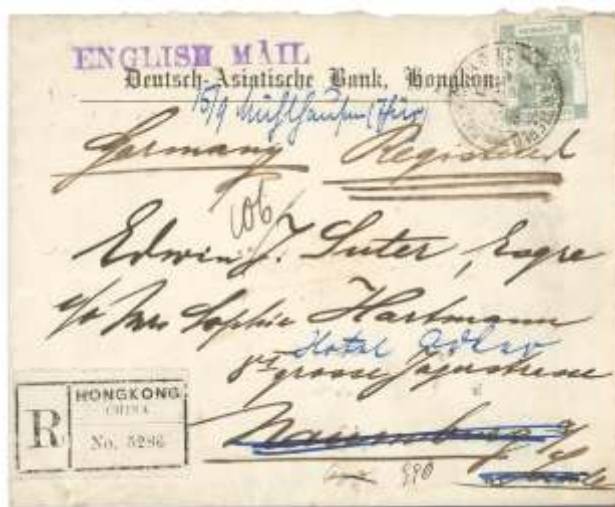 ENGLISH MAIL
Deutsch-Asiatische Bank, Hongkon
15/9 Mühlhausen (Thür)
Germany Registered
106
Edwin J. Suter, Esqre
c/o Mrs Sophie Hartmann
Hotel Adler
8I grosse Jägerstrasse
HONGKONG
CHINA
R No. 5286
Naumburg a/
Saale
990